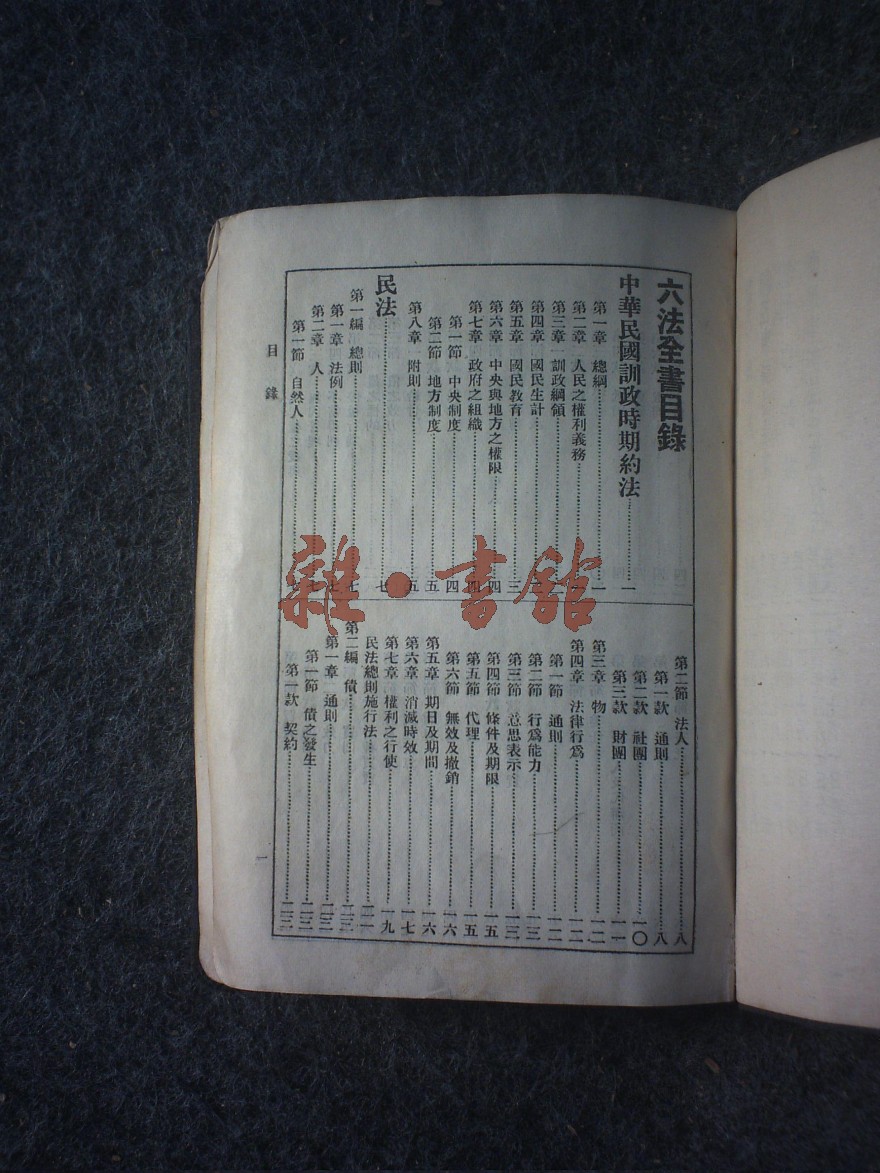 六法全書目錄
中華民國訓政時期約法……一
第一章 總綱……一
第二章 人民之權利義務……一
第三章 訓政綱領
第四章 國民生計
第五章 國民教育……三
第六章 中央與地方之權限……四
第七章 政府之組織……四
第一節 中央制度……四
第二節 地方制度……五
第八章 附則……五
民法……七
第一編 總則……七
第一章 法例……七
第二章 人
第一節 自然人
第二節 法人……八
第一款 通則……八
第二款 社團……一〇
第三款 財團……一一
第三章 物……一二
第四章 法律行爲……一二
第一節 通則……一二
第二節 行爲能力……一三
第三節 意思表示……一三
第四節 條件及期限……一五
第五節 代理……一五
第六節 無效及撤銷……一六
第五章 期日及期間……一六
第六章 消滅時效……一七
第七章 權利之行使……一九
民法總則施行法……二一
第二編 債……二三
第一章 通則……二三
第一節 債之發生……二三
第一款 契約……二三
目錄
一
雜·書館